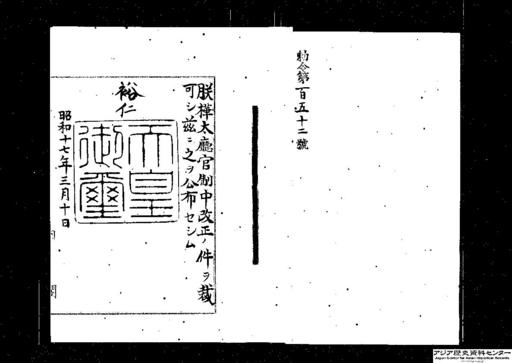 勅令第百五十二號
朕樺太廳官制中改正ノ件ヲ裁
可シ茲ニ之ヲ公布セシム
裕仁
天皇
御璽
昭和十七年三月十日
内
閣
アジア歴史資料センター
Japan Center for Asian Historical Records